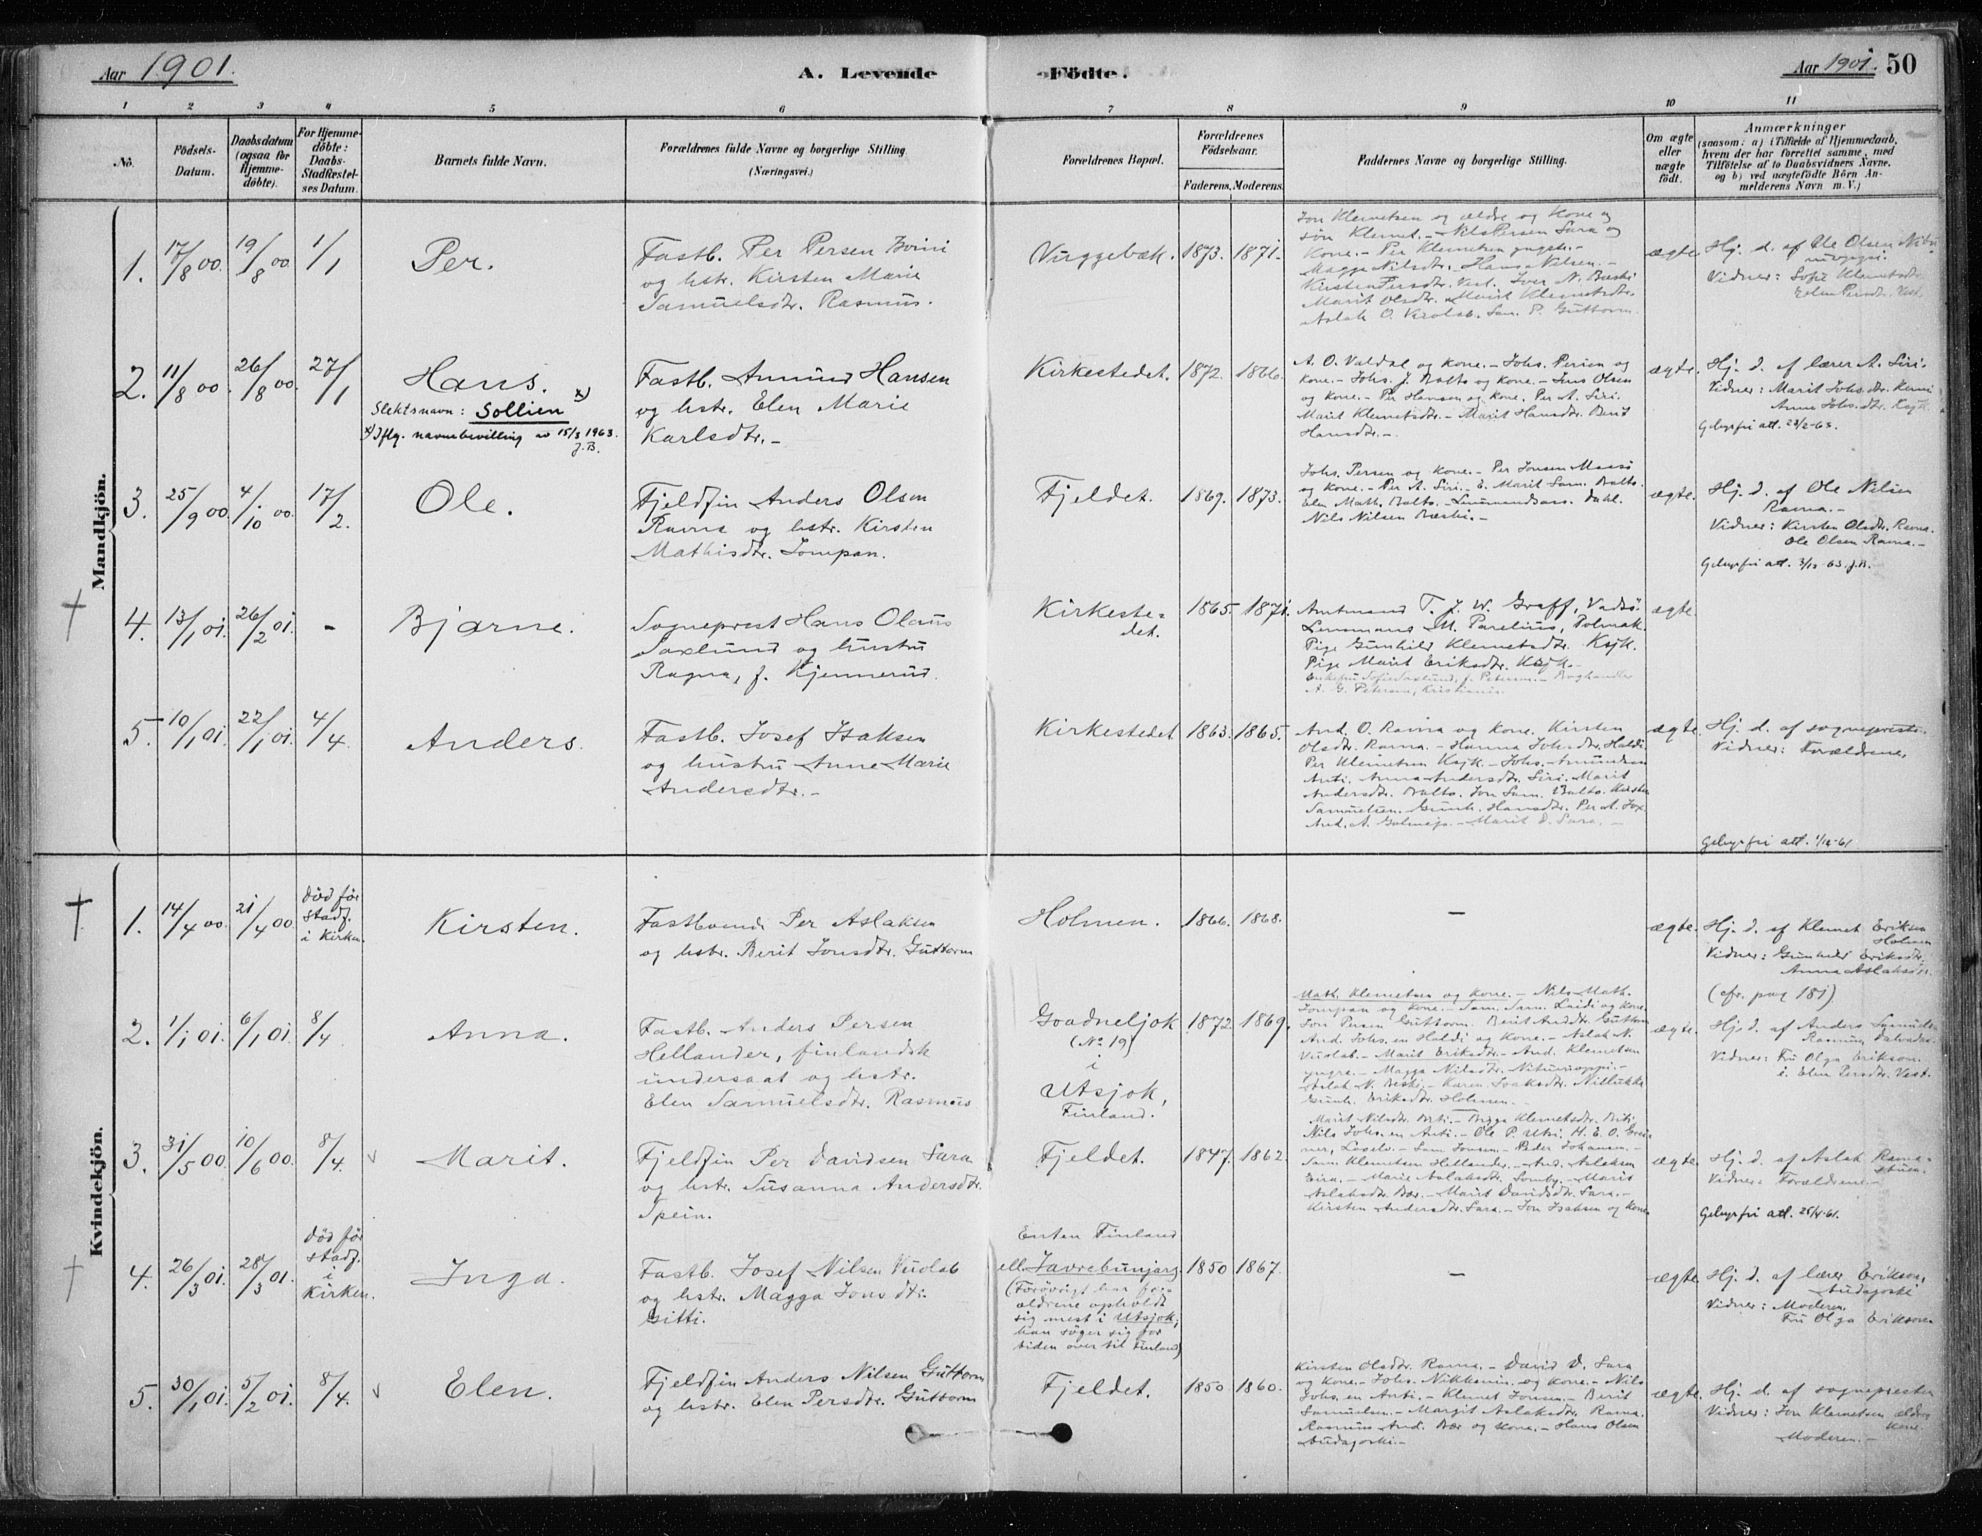 Aar 1901.
A. Levende
Födte.
Aar 1901. 50
1 2 3 4 5 6 7 8 9 10 11
No.
Födsels-Datum.
Daabsdatum (ogsaa for Hjemme-döbte).
For Hjemme-döbte: Daabs-Stadfæstel-ses Datum.
Barnets fulde Navn.
Forældrenes fulde Navne og borgerlige Stilling
(Næringsvei.)
Forældrenes Bopæl.
Forældrenes Födselsaar.
Faderens. Moderens.
Faddernes Navne og borgerlige Stilling.
Om ægte eller uægte födt.
Anmærkninger
(saasom: a) i Tilfælde af Hjemmedaab, hvem der har forrettet samme, med Tilföielse af to Daabsvidners Navne, og b) ved uægtefödte Börn An-melderens Navn m. V.)
Mandkjön.
1. 17/8 00. 19/8 00. 1/1 Per.
Fastb. Per Persen
og hstr. Kirsten Marie
Samuelsdtr. Rasmus.
Vuggebæk. 1873. 1871.
Jon Klemetsen og ældre og kone og
søn Klemet. - Nils Persen Sara og
Kone. - Per Klemetsen yngste. -
Magga Nilsdtr. Hans Nilsen. -
Marit Olsdtr. Marit Klemetsdtr.
ægte.
Hj. d. af Ole Olsen
Vidner: Sofie Klemetsdtr.
2. 11/8 00. 26/8 00. 27/1 Hans. x)
Slektsnavn: Sollien
x) Iflg. navnebevilling av 15/3 1963.
J.B.
Fastb. Amund Hansen
og hstr. Elen Marie
Karlsdtr. -
Kirkestedet. 1872. 1866.
A. O. Valdal og kone. - Johs. Persen og
kone. - Johs. J. Balto og kone. - Jens Olsen
og kone. - Per Hansen og kone. Per A. Siri.
Marit Klemetsdtr. - Marit Hansdtr. Berit
Hansdtr. -
ægte.
Hj. d. af lærer A. Siri.
Vidner: Marit Johs.dtr.
Anne Johs.dtr. Ksjk.
Gebyrfri att. 23/2-63.
3. 25/9 00. 4/10 00. 17/2. Ole.
Fjeldfin Anders Olsen
Ravna og hstr. Kirsten
Mathisdtr. Jompan.
Fjeldet. 1869. 1873.
Johs. Persen og kone. - Per Jonsen
og kone. - Per A. Siri. - E. Marit Sam. Balto.
Elen Math. Balto. - Dahl.
Nils Nilsen Bæski. -
ægte.
Hj. d. af Ole Nilsen
Ravna. -
Vidner: Kirsten Olsdtr. Ravna.
Ole Olsen Ravna. -
Gebyrfri att. 3/12-63. J.B.
4. 13/1 01. 26/2 01. - Bjarne.
Sogneprest Hans Olaus
Saxlund og hustru
Ragna, f. Kjennerud.
Kirkeste-
det. 1865. 1871.
Amtmand T. J. W. Graff, Vadsö.
Lensmand M. Parelius, Polmak.
Pige Gunhild Klemetsdtr. Ksjk.
Pige Marit Eriksdtr. Ksjk. -
Enkefru Sofie Saxlund, f. Petersen. - Boghandler
A. G. Petersen, Kristiania.
ægte.
5. 10/1 01. 22/1 01. 4/4 Anders.
Fastb. Josef Isaksen
og hustru Anne Marie
Andersdtr. -
Kirkestedet 1863. 1865.
And. O. Ravna og kone Kirsten
Olsdtr. Ravna. - Hanna Johs.dtr. Haldi.
Per Klemetsen Ksjk. - Johs. Amundsen
Anti. Anna Andersdtr. Siri. Marit
Andersdtr. Balto. Jon Sam. Balto. Kirsten
Samuelsen. Gunh. Hansdtr. Per A.
And. A. - Marit D. Sara. -
ægte.
Hj. d. af sogneprest.
Vidner: Forældrene.
Gebyrfri att. 1/12-61
Kvindekjön.
1. 14/4 00. 21/4 00. Död før
stadf.
i Kirken.
Kirsten.
Fastboende Per Aslaksen
og hstr. Berit Jonsdtr. Guttorm
Holmen. 1866. 1868. - ægte.
Hj. d. af Klemet Eriksen
Holmen
Vidner: Gunhild Eriksdtr.
Anna Aslaksdtr.
(cfr. pag 181).
2. 1/1 01. 6/1 01. 8/4 Anna.
Fastb. Anders Persen
Hellander, finlandsk
undersaat og hstr.
Elen Samuelsdtr. Rasmus
Goadneljok
(No 19)
i
Utsjok,
Finland.
1872. 1869.
Math. Klemetsen og Kone. - Nils Math.
Jompan og Kone. - Sam. Sam. og kone.
Jon Persen Guttorm. Berit And.dtr. Guttorm
And. Johs.en Haldi og Kone. - Aslak N.
Vuolab. - Marit Eriksdtr. - And. Klemetsen
yngre. - Magga Nilsdtr. -
Aslak N. Beski. - Karen Isaksdtr.
Gunh. Eriksdtr. Holmen. -
ægte.
Hj. d. af Anders Samuelsen
Rasmus
Vidner: Fru Olga Erikson.
Elen Persdtr. Vest.
3. 31/5 00. 10/6 00. 8/4. Marit.
Fjeldfin Per Davidsen Sara
og hstr. Susanna Andersdtr.
Spein.
Fjeldet. 1847. 1862.
Marit Nilsdtr. - Bigga Klemetsdtr.
Nils Johs.en Anti. - Ole P. Utsi.
- Sam Jonsen - Peder Johansen -
Sam Klemetsen Hellander. - And. Aslaksen
Eira. - Marie Aslaksdtr. Somby. - Marit
Aslaksdtr. Bær. - Marit Davidsdtr. Sara. -
Kirsten Andersdtr. Sara. - Jon Isaksen og kone
ægte.
Hj. d. af Aslak Ravna
Vidner: Forældrene. -
Gebyrfri att. 25/4-61.
4. 26/3 01. 28/3 01. Död før
stadf.
i
Kirken.
Inga.
Fastb. Josef Nilsen Vuolab
og hstr. Magga Jonsdtr.
Gitti.
Enten Finland
ell. Javrebunjarg
(Forövrigt har for-
ældrene opholdt
sig mest i Utsjok;
han søger sig for
tiden over til Finland)
1850 1867. - ægte.
Hj. d. af lærer Erikson,
Vidner: Moderen.
Fru Olga Erikson
5. 30/1 01. 5/2 01. 8/4. Elen.
Fjeldfin Anders Nilsen Guttorm
og hstr. Elen Persdtr. Guttorm
Fjeldet. 1850. 1860.
Kirsten Olsdtr. Ravna. - David D. Sara
og Kone. - Johs. Nikkinen og Kone. - Nils
Johs.en Anti. - Klemet Jonsen. - Berit
Samuelsen. - Margit Aslaksdtr. Ravna.
Rasmus And. Bær og Kone. - Hans Olsen
ægte.
Hj. d. af sognepresten
Vidner: Jon Klemetsen ældres
Kone.
Moderen. -